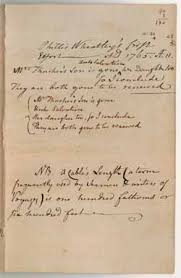 Phillis Wheatley's first
Effort — AD 1765. AE 11.
Mrs Thacher's Son is gone
her Daughter too
So I conclude
They are both gone to be renewed
Mrs Thacher's Son is gone
Unto Salvation
Her daughter too, so I conclude
They are both gone to be renewed
NB a Cable's Length (a term
frequently used by Seamen & writers of
Voyages) is one hundred fathoms or
six hundred feet